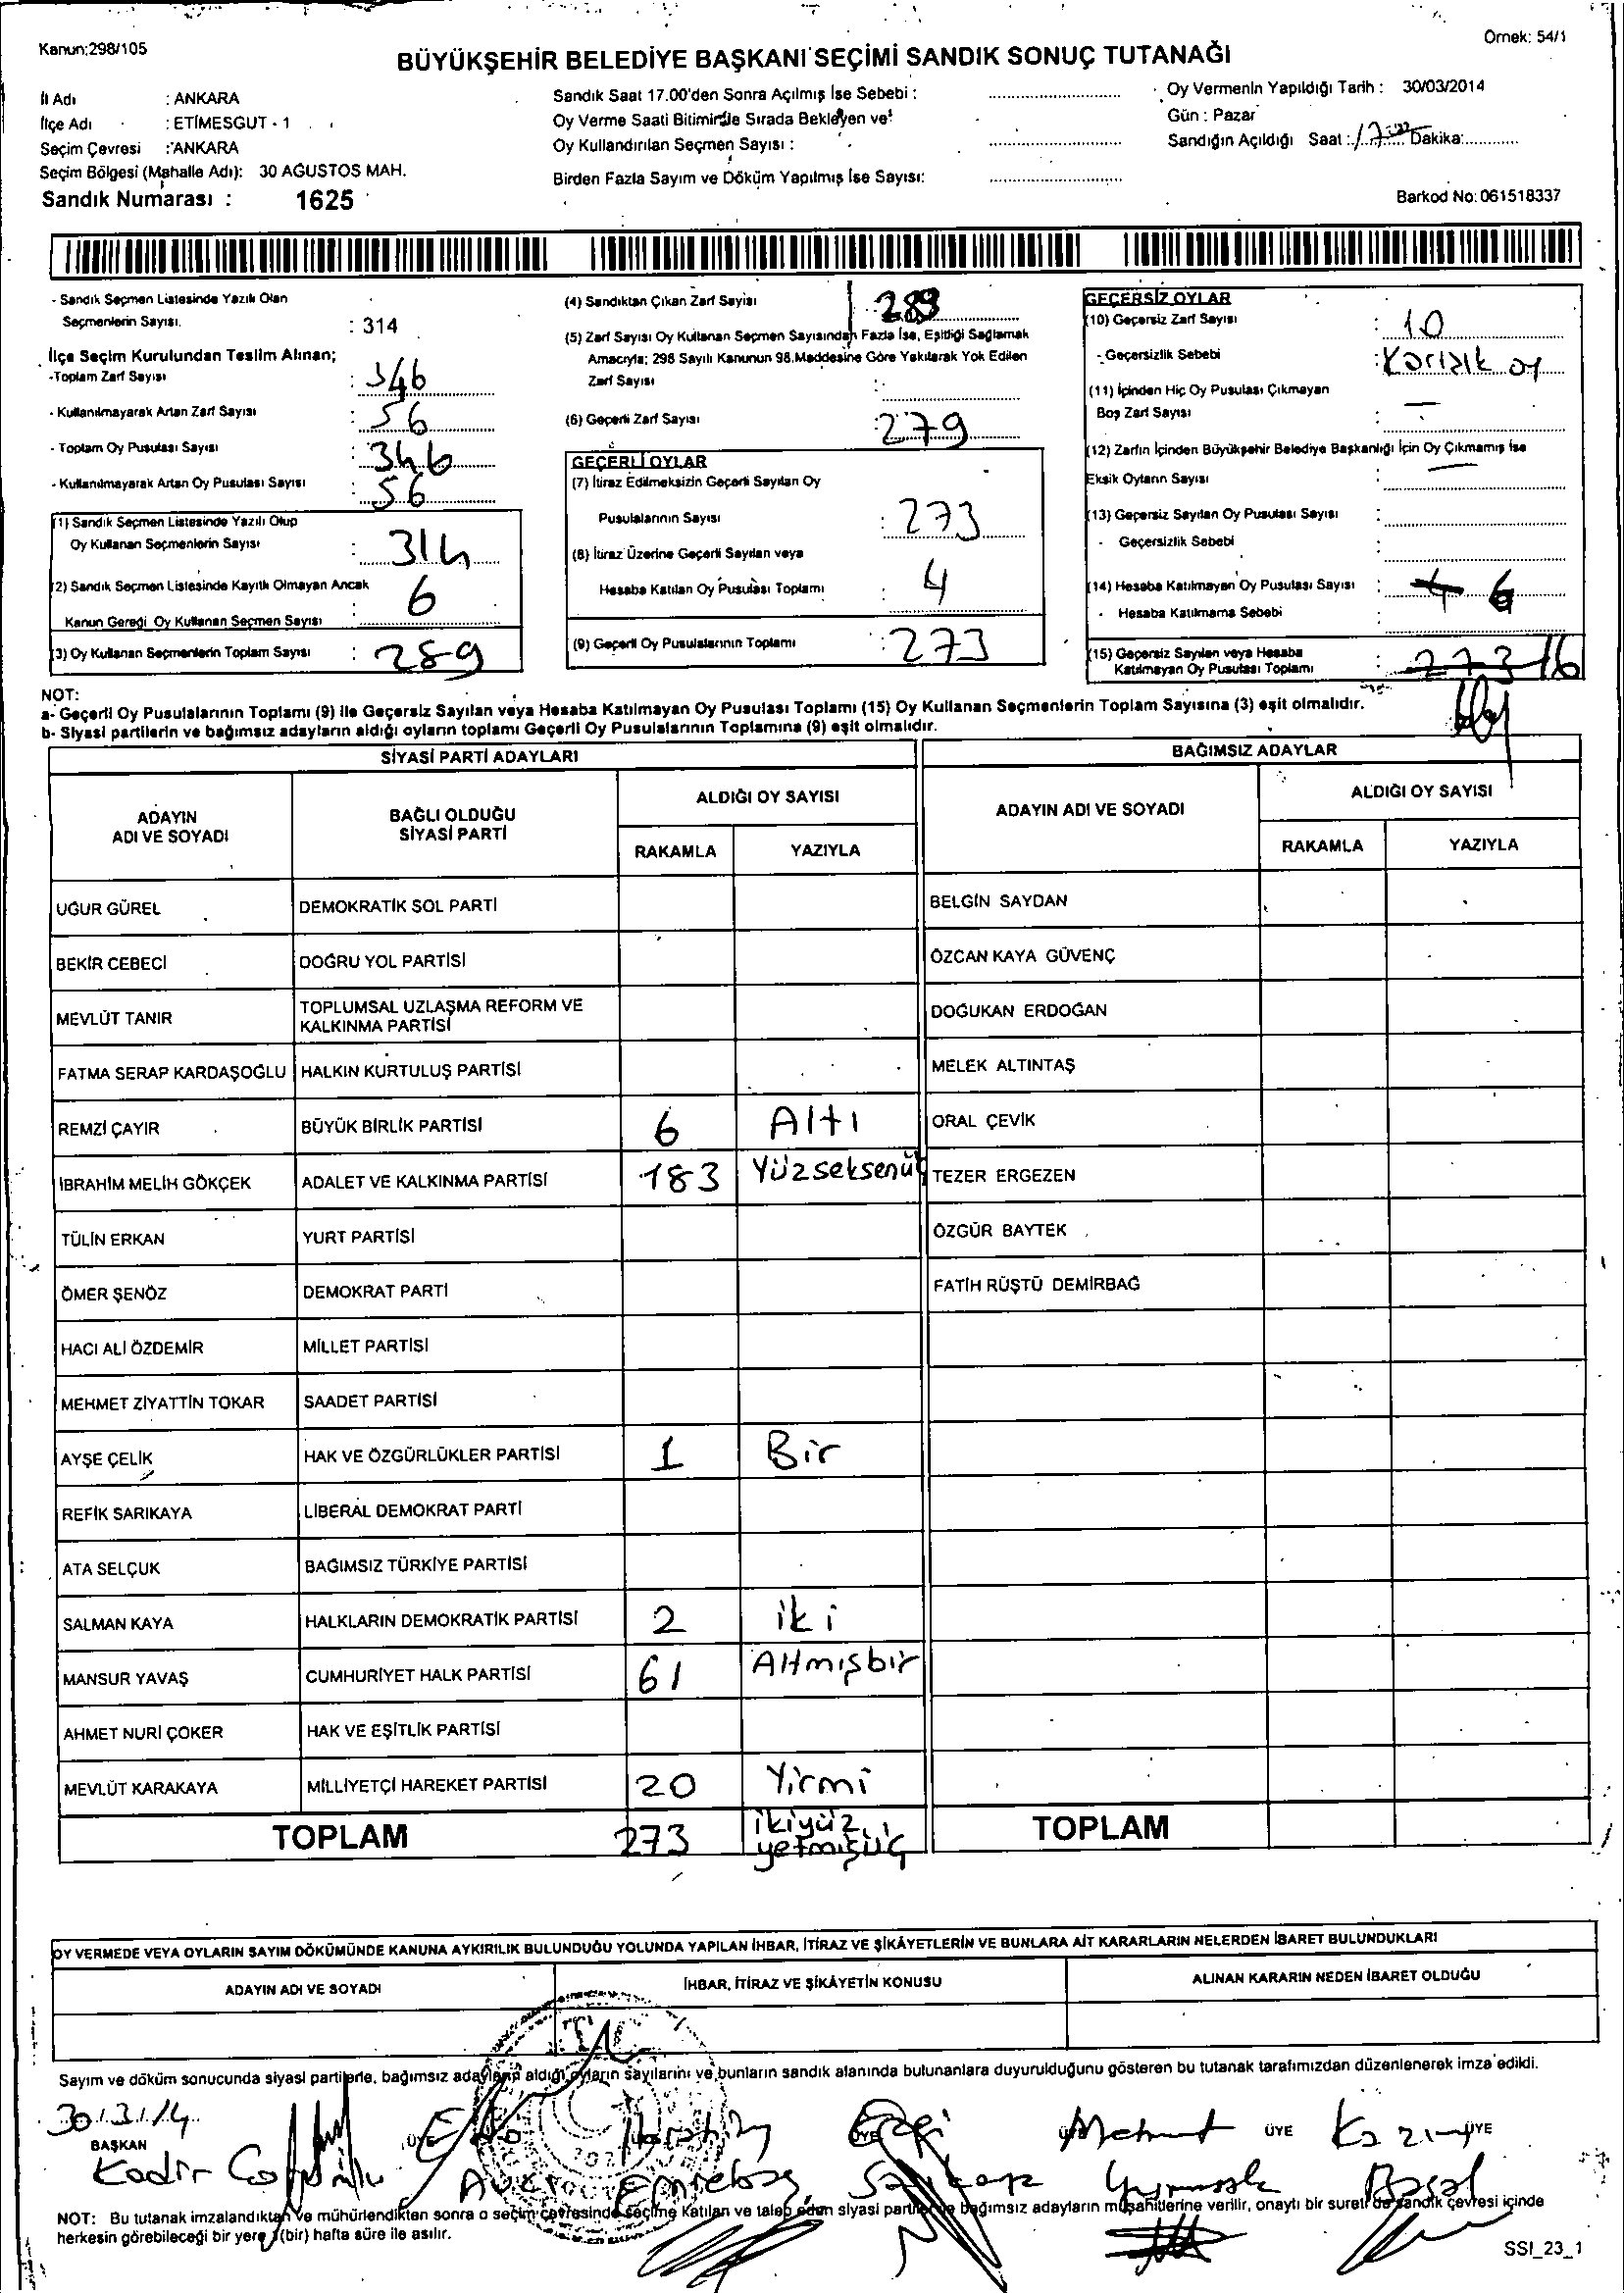 Kanun:298/105
Örnek: 54/1
BÜYÜKŞEHİR BELEDİYE BAŞKANI SEÇİMİ SANDIK SONUÇ TUTANAĞI
İl Adı : ANKARA
İlçe Adı : ETİMESGUT - 1
Seçim Çevresi : ANKARA
Seçim Bölgesi (Mahalle Adı): 30 AĞUSTOS MAH.
Sandık Numarası : 1625
Sandık Saat 17.00'den Sonra Açılmış İse Sebebi :
Oy Verme Saati Bitiminde Sırada Bekleyen ve
Oy Kullandırılan Seçmen Sayısı :
Birden Fazla Sayım ve Döküm Yapılmış İse Sayısı:
Oy Vermenin Yapıldığı Tarih : 30/03/2014
Gün : Pazar
Sandığın Açıldığı Saat : 17:00 Dakika:
Barkod No: 061518337
- Sandık Seçmen Listesinde Yazılı Olan
Seçmenlerin Sayısı. : 314
İlçe Seçim Kurulundan Teslim Alınan;
-Toplam Zarf Sayısı : 346
- Kullanılmayarak Artan Zarf Sayısı : 56
- Toplam Oy Pusulası Sayısı : 346
- Kullanılmayarak Artan Oy Pusulası Sayısı : 56
(1) Sandık Seçmen Listesinde Yazılı Olup
Oy Kullanan Seçmenlerin Sayısı : 314
(2) Sandık Seçmen Listesinde Kayıtlı Olmayan Ancak
Kanun Gereği Oy Kullanan Seçmen Sayısı : 6
(3) Oy Kullanan Seçmenlerin Toplam Sayısı : 289
(4) Sandıktan Çıkan Zarf Sayısı 289
(5) Zarf Sayısı Oy Kullanan Seçmen Sayısından Fazla İse, Eşitliği Sağlamak
Amacıyla; 298 Sayılı Kanunun 98.Maddesine Göre Yakılarak Yok Edilen
Zarf Sayısı :
(6) Geçerli Zarf Sayısı : 279
GEÇERLİ OYLAR
(7) İtiraz Edilmeksizin Geçerli Sayılan Oy
Pusulalarının Sayısı : 273
(8) İtiraz Üzerine Geçerli Sayılan veya
Hesaba Katılan Oy Pusulası Toplamı : 4
(9) Geçerli Oy Pusulalarının Toplamı : 273
GEÇERSİZ OYLAR
(10) Geçersiz Zarf Sayısı : 10
- Geçersizlik Sebebi : Karışık oy
(11) İçinden Hiç Oy Pusulası Çıkmayan
Boş Zarf Sayısı : —
(12) Zarfın İçinden Büyükşehir Belediye Başkanlığı İçin Oy Çıkmamış İse
Eksik Oyların Sayısı : —
(13) Geçersiz Sayılan Oy Pusulası Sayısı :
- Geçersizlik Sebebi :
(14) Hesaba Katılmayan Oy Pusulası Sayısı : 6
- Hesaba Katılmama Sebebi :
(15) Geçersiz Sayılan veya Hesaba
Katılmayan Oy Pusulası Toplamı : 273 16
NOT:
a- Geçerli Oy Pusulalarının Toplamı (9) ile Geçersiz Sayılan veya Hesaba Katılmayan Oy Pusulası Toplamı (15) Oy Kullanan Seçmenlerin Toplam Sayısına (3) eşit olmalıdır.
b- Siyasi partilerin ve bağımsız adayların aldığı oyların toplamı Geçerli Oy Pusulalarının Toplamına (9) eşit olmalıdır.
SİYASİ PARTİ ADAYLARI
BAĞIMSIZ ADAYLAR
ADAYIN
ADI VE SOYADI
BAĞLI OLDUĞU
SİYASİ PARTİ
ALDIĞI OY SAYISI
RAKAMLA YAZIYLA
ADAYIN ADI VE SOYADI
ALDIĞI OY SAYISI
RAKAMLA YAZIYLA
UĞUR GÜREL DEMOKRATİK SOL PARTİ BELGİN SAYDAN
BEKİR CEBECİ DOĞRU YOL PARTİSİ ÖZCAN KAYA GÜVENÇ
MEVLÜT TANIR TOPLUMSAL UZLAŞMA REFORM VE
KALKINMA PARTİSİ DOĞUKAN ERDOĞAN
FATMA SERAP KARDAŞOĞLU HALKIN KURTULUŞ PARTİSİ MELEK ALTINTAŞ
REMZİ ÇAYIR BÜYÜK BİRLİK PARTİSİ 6 Altı ORAL ÇEVİK
İBRAHİM MELİH GÖKÇEK ADALET VE KALKINMA PARTİSİ 183 Yüzseksenüç TEZER ERGEZEN
TÜLİN ERKAN YURT PARTİSİ ÖZGÜR BAYTEK
ÖMER ŞENÖZ DEMOKRAT PARTİ FATİH RÜŞTÜ DEMİRBAĞ
HACI ALİ ÖZDEMİR MİLLET PARTİSİ
MEHMET ZİYATTİN TOKAR SAADET PARTİSİ
AYŞE ÇELİK HAK VE ÖZGÜRLÜKLER PARTİSİ 1 Bir
REFİK SARIKAYA LİBERAL DEMOKRAT PARTİ
ATA SELÇUK BAĞIMSIZ TÜRKİYE PARTİSİ
SALMAN KAYA HALKLARIN DEMOKRATİK PARTİSİ 2 iki
MANSUR YAVAŞ CUMHURİYET HALK PARTİSİ 61 Altmışbir
AHMET NURİ ÇOKER HAK VE EŞİTLİK PARTİSİ
MEVLÜT KARAKAYA MİLLİYETÇİ HAREKET PARTİSİ 20 Yirmi
TOPLAM 273 ikiyüz yetmişüç TOPLAM
OY VERMEDE VEYA OYLARIN SAYIM DÖKÜMÜNDE KANUNA AYKIRILIK BULUNDUĞU YOLUNDA YAPILAN İHBAR, İTİRAZ VE ŞİKÂYETLERİN VE BUNLARA AİT KARARLARIN NELERDEN İBARET BULUNDUKLARI
ADAYIN ADI VE SOYADI İHBAR, İTİRAZ VE ŞİKÂYETİN KONUSU ALINAN KARARIN NEDEN İBARET OLDUĞU
Sayım ve döküm sonucunda siyasi partilerle, bağımsız adayların aldığı oyların sayılarını ve bunların sandık alanında bulunanlara duyurulduğunu gösteren bu tutanak tarafımızdan düzenlenerek imza edildi.
30/3/14
BAŞKAN ÜYE ÜYE ÜYE ÜYE ÜYE
Kadir İbrahim Ezgi Mehmet Kazım
NOT: Bu tutanak imzalandıktan ve mühürlendikten sonra o seçim çevresinde seçime katılan ve talep eden siyasi parti ve bağımsız adayların müşahitlerine verilir, onaylı bir sureti de sandık çevresi içinde
herkesin görebileceği bir yere 1(bir) hafta süre ile asılır.
SSI_23_1